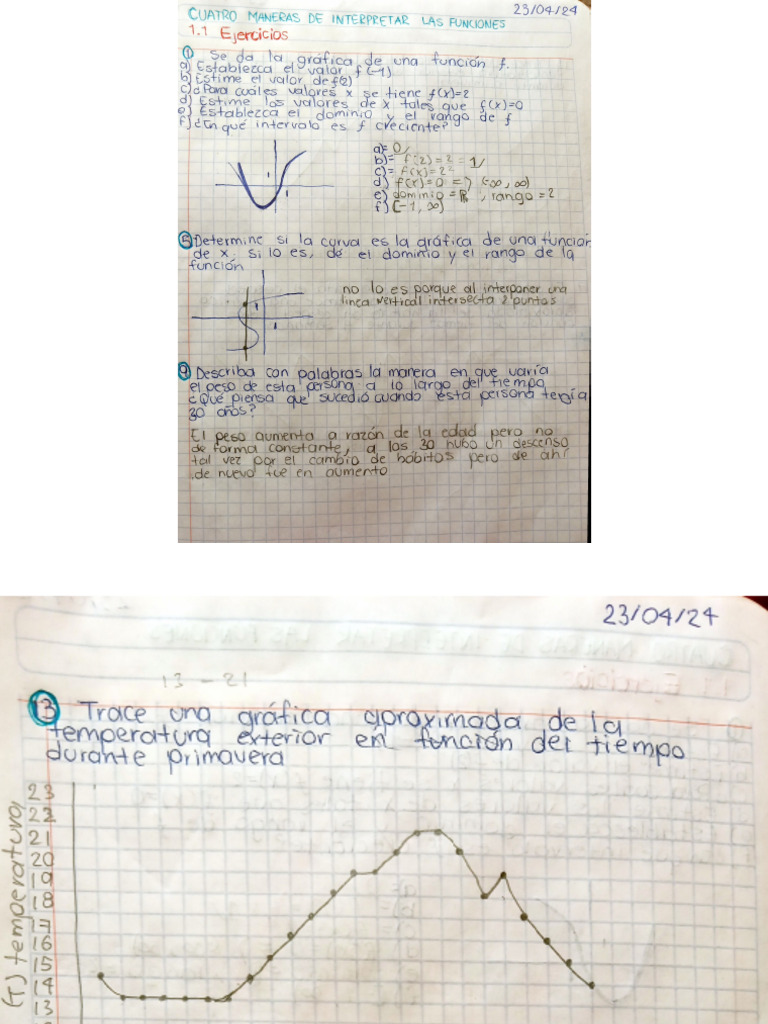 23/04/24
CUATRO MANERAS DE INTERPRETAR LAS FUNCIONES
1.1 Ejercicios
① Se da la gráfica de una función f.
a) Establezca el valor f(-1)
b) Estime el valor de f(2)
c) ¿Para cuáles valores x se tiene f(x)=2
d) Estime los valores de x tales que f(x)=0
e) Establezca el dominio y el rango de f
f) ¿En qué intervalo es f creciente?
a)= 0
b)= f(2)=2 = 1
c)= f(x)=2
d) f(x)=0 = (-∞, ∞)
e) dominio = ℝ, rango = 2
f) [-1, ∞)
⑤ Determine si la curva es la gráfica de una función
de x. si lo es, dé el dominio y el rango de la
función
no lo es porque al interponer una
linea vertical intersecta 2 puntos
1
1
⑨ Describa con palabras la manera en que varía
el peso de esta persona a lo largo del tiempo
¿Qué piensa que sucedió cuando esta persona tenía
30 años?
El peso aumenta a razón de la edad pero no
de forma constante, a los 30 hubo un descenso
tal vez por el cambio de hábitos pero de ahí
de nuevo fue en aumento
23/04/24
13 - 21
⑬ Trace una gráfica aproximada de la
temperatura exterior en función del tiempo
durante primavera
(T) temperatura
23
22
21
20
19
18
17
16
15
14
13